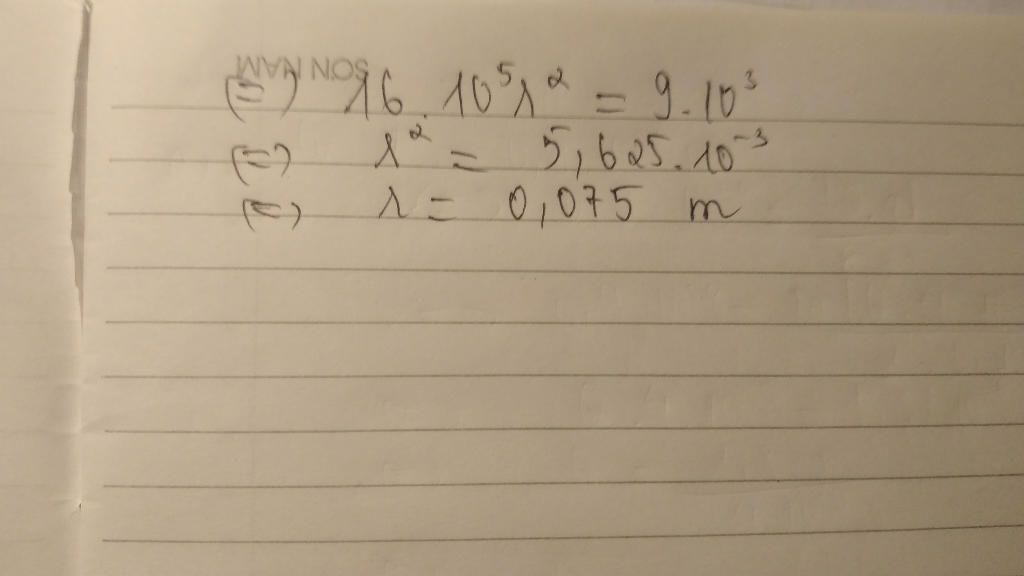 SON NAM
(=) 16.10⁵λ² = 9.10³
(=) λ² = 5,625.10⁻³
(=) λ = 0,075 m